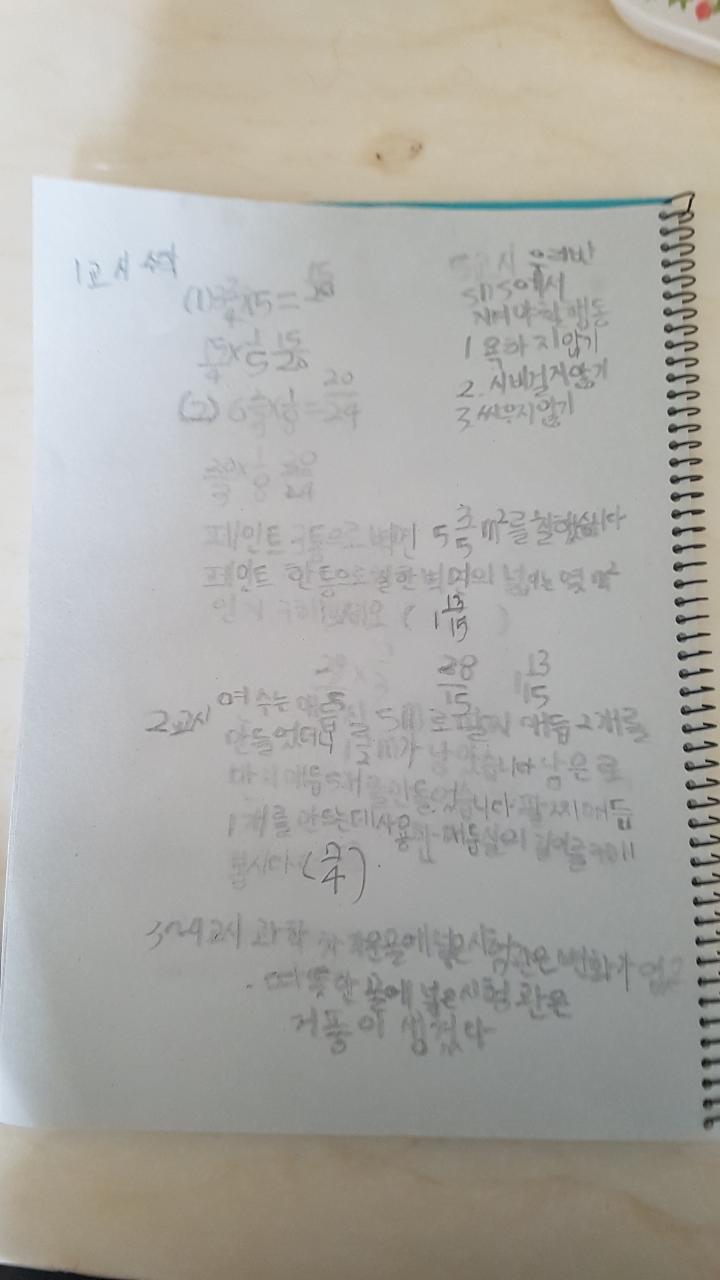 1교시 수학
(1) 3 3/4 × 5 = 15/20
15/4 × 1/5 15/20
(2) 6 2/3 × 1/8 = 20/24
20/3 × 1/8 20/24
페인트 3통으로 벽면 5 3/5 m²를 칠했습니다
페인트 한 통으로 칠한 벽면의 넓이는 몇 m²
인지 구하세요 ( 1 13/15 )
28/15 1 13/15
2교시 여수는 매듭실 5m로 팔찌 매듭 2개를
만들었더니 1 m가 남았습니다 남은
매듭 5개를 만들었습니다 팔찌 매듭
1개를 만드는데 사용한 매듭실의 길이를 구해
봅시다 ( /4 )
3~4교시 과학 차가운물에 넣은 시험관은 변화가 없고
. 따뜻한 물에 넣은 시험관은
거품이 생겼다
5교시 우리반
sns에서
지켜야 할 행동
1 욕하지 않기
2. 시비걸지않기
3. 싸우지않기